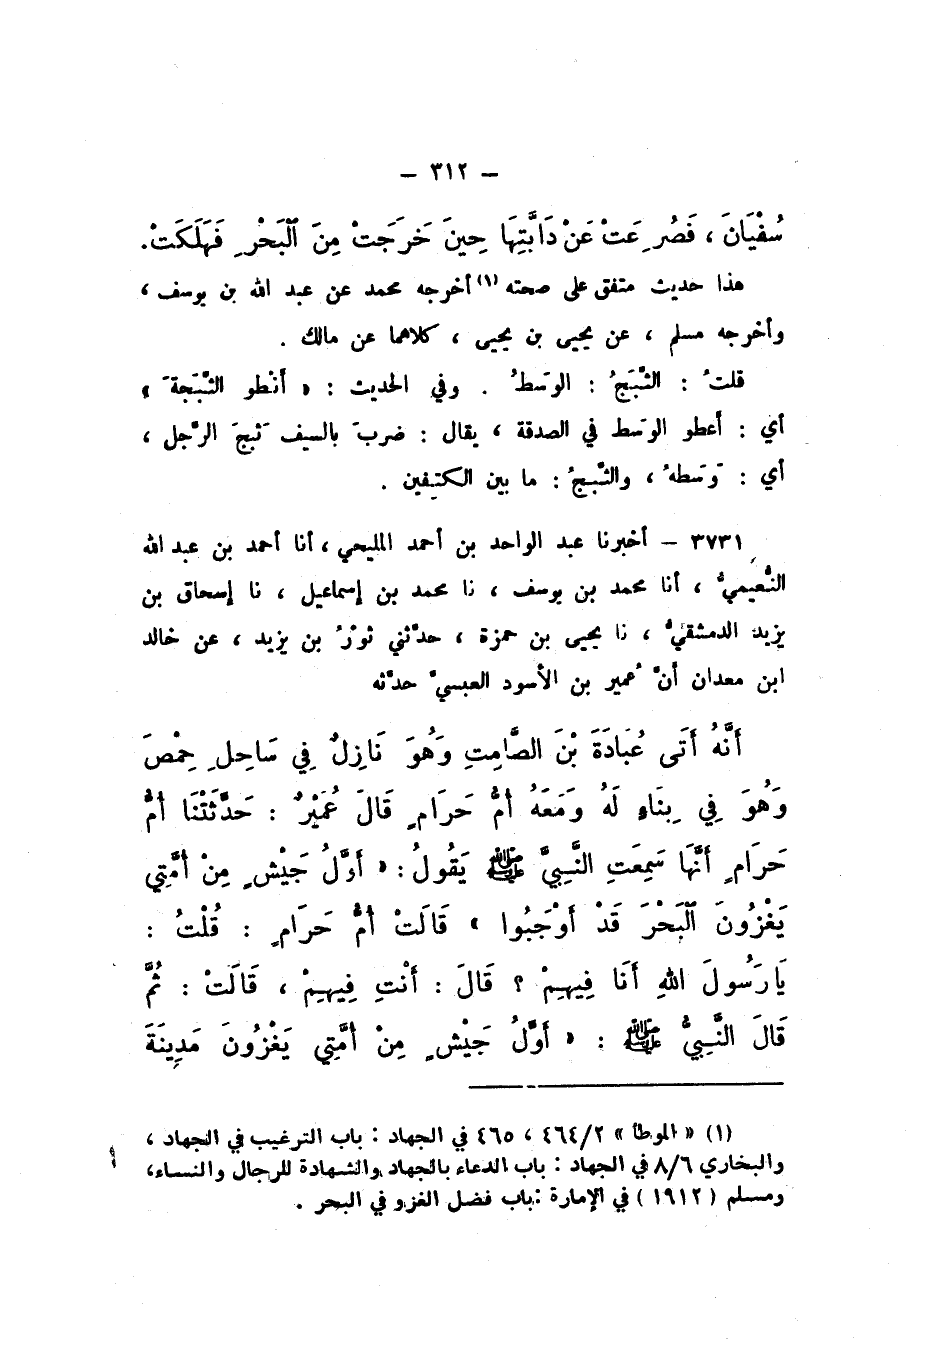 – ٣١٢ –
سُفْيَانَ ، فَصُرِعَتْ عَنْ دَابَّتِهَا حِينَ خَرَجَتْ مِنَ الْبَحْرِ فَهَلَكَتْ.
هذا حديث متفق على صحته (١) أخرجه محمد عن عبد الله بن يوسف ،
وأخرجه مسلم ، عن يحيى بن يحيى ، كلاهما عن مالك .
قلتُ : الثَّبَجُ : الوسَطُ . وفي الحديث : « أَنْطو الثَّبَجةَ »
أي : أَعطو الوسَط في الصدقة ، يقال : ضربَ بالسيف ثبجَ الرَّجل ،
أي : وَسَطهُ ، والثَّبجُ : ما بين الكتفين .
٣٧٣١ – أخبرنا عبد الواحد بن أحمد المليحي ، أنا أحمد بن عبد الله
النُّعيميُّ ، أنا محمد بن يوسف ، نا محمد بن إسماعيل ، نا إسحاق بن
يزيد الدمشقيُّ ، نا يحيى بن حمزة ، حدَّثني ثورُ بن يزيد ، عن خالد
ابن معدان أنَّ عُمير بن الأسود العبسيَّ حدَّثه
أَنَّهُ أَتَى عُبَادَةَ بْنَ الصَّامِتِ وَهُوَ نَازِلٌ فِي سَاحِلِ حِمْصَ
وَهُوَ فِي بِنَاءٍ لَهُ وَمَعَهُ أُمُّ حَرَامٍ قَالَ عُمَيْرٌ : حَدَّثَتْنَا أُمُّ
حَرَامٍ أَنَّهَا سَمِعَتِ النَّبِيَّ ﷺ يَقُولُ : « أَوَّلُ جَيْشٍ مِنْ أُمَّتِي
يَغْزُونَ الْبَحْرَ قَدْ أَوْجَبُوا » قَالَتْ أُمُّ حَرَامٍ : قُلْتُ :
يَا رَسُولَ اللهِ أَنَا فِيهِمْ ؟ قَالَ : أَنْتِ فِيهِمْ ، قَالَتْ : ثُمَّ
قَالَ النَّبِيُّ ﷺ : « أَوَّلُ جَيْشٍ مِنْ أُمَّتِي يَغْزُونَ مَدِينَةَ
(١) « الموطأ » ٤٦٤/٢ ، ٤٦٥ في الجهاد : باب الترغيب في الجهاد ،
والبخاري ٨/٦ في الجهاد : باب الدعاء بالجهاد والشهادة للرجال والنساء،
ومسلم ( ١٩١٢ ) في الإمارة : باب فضل الغزو في البحر .